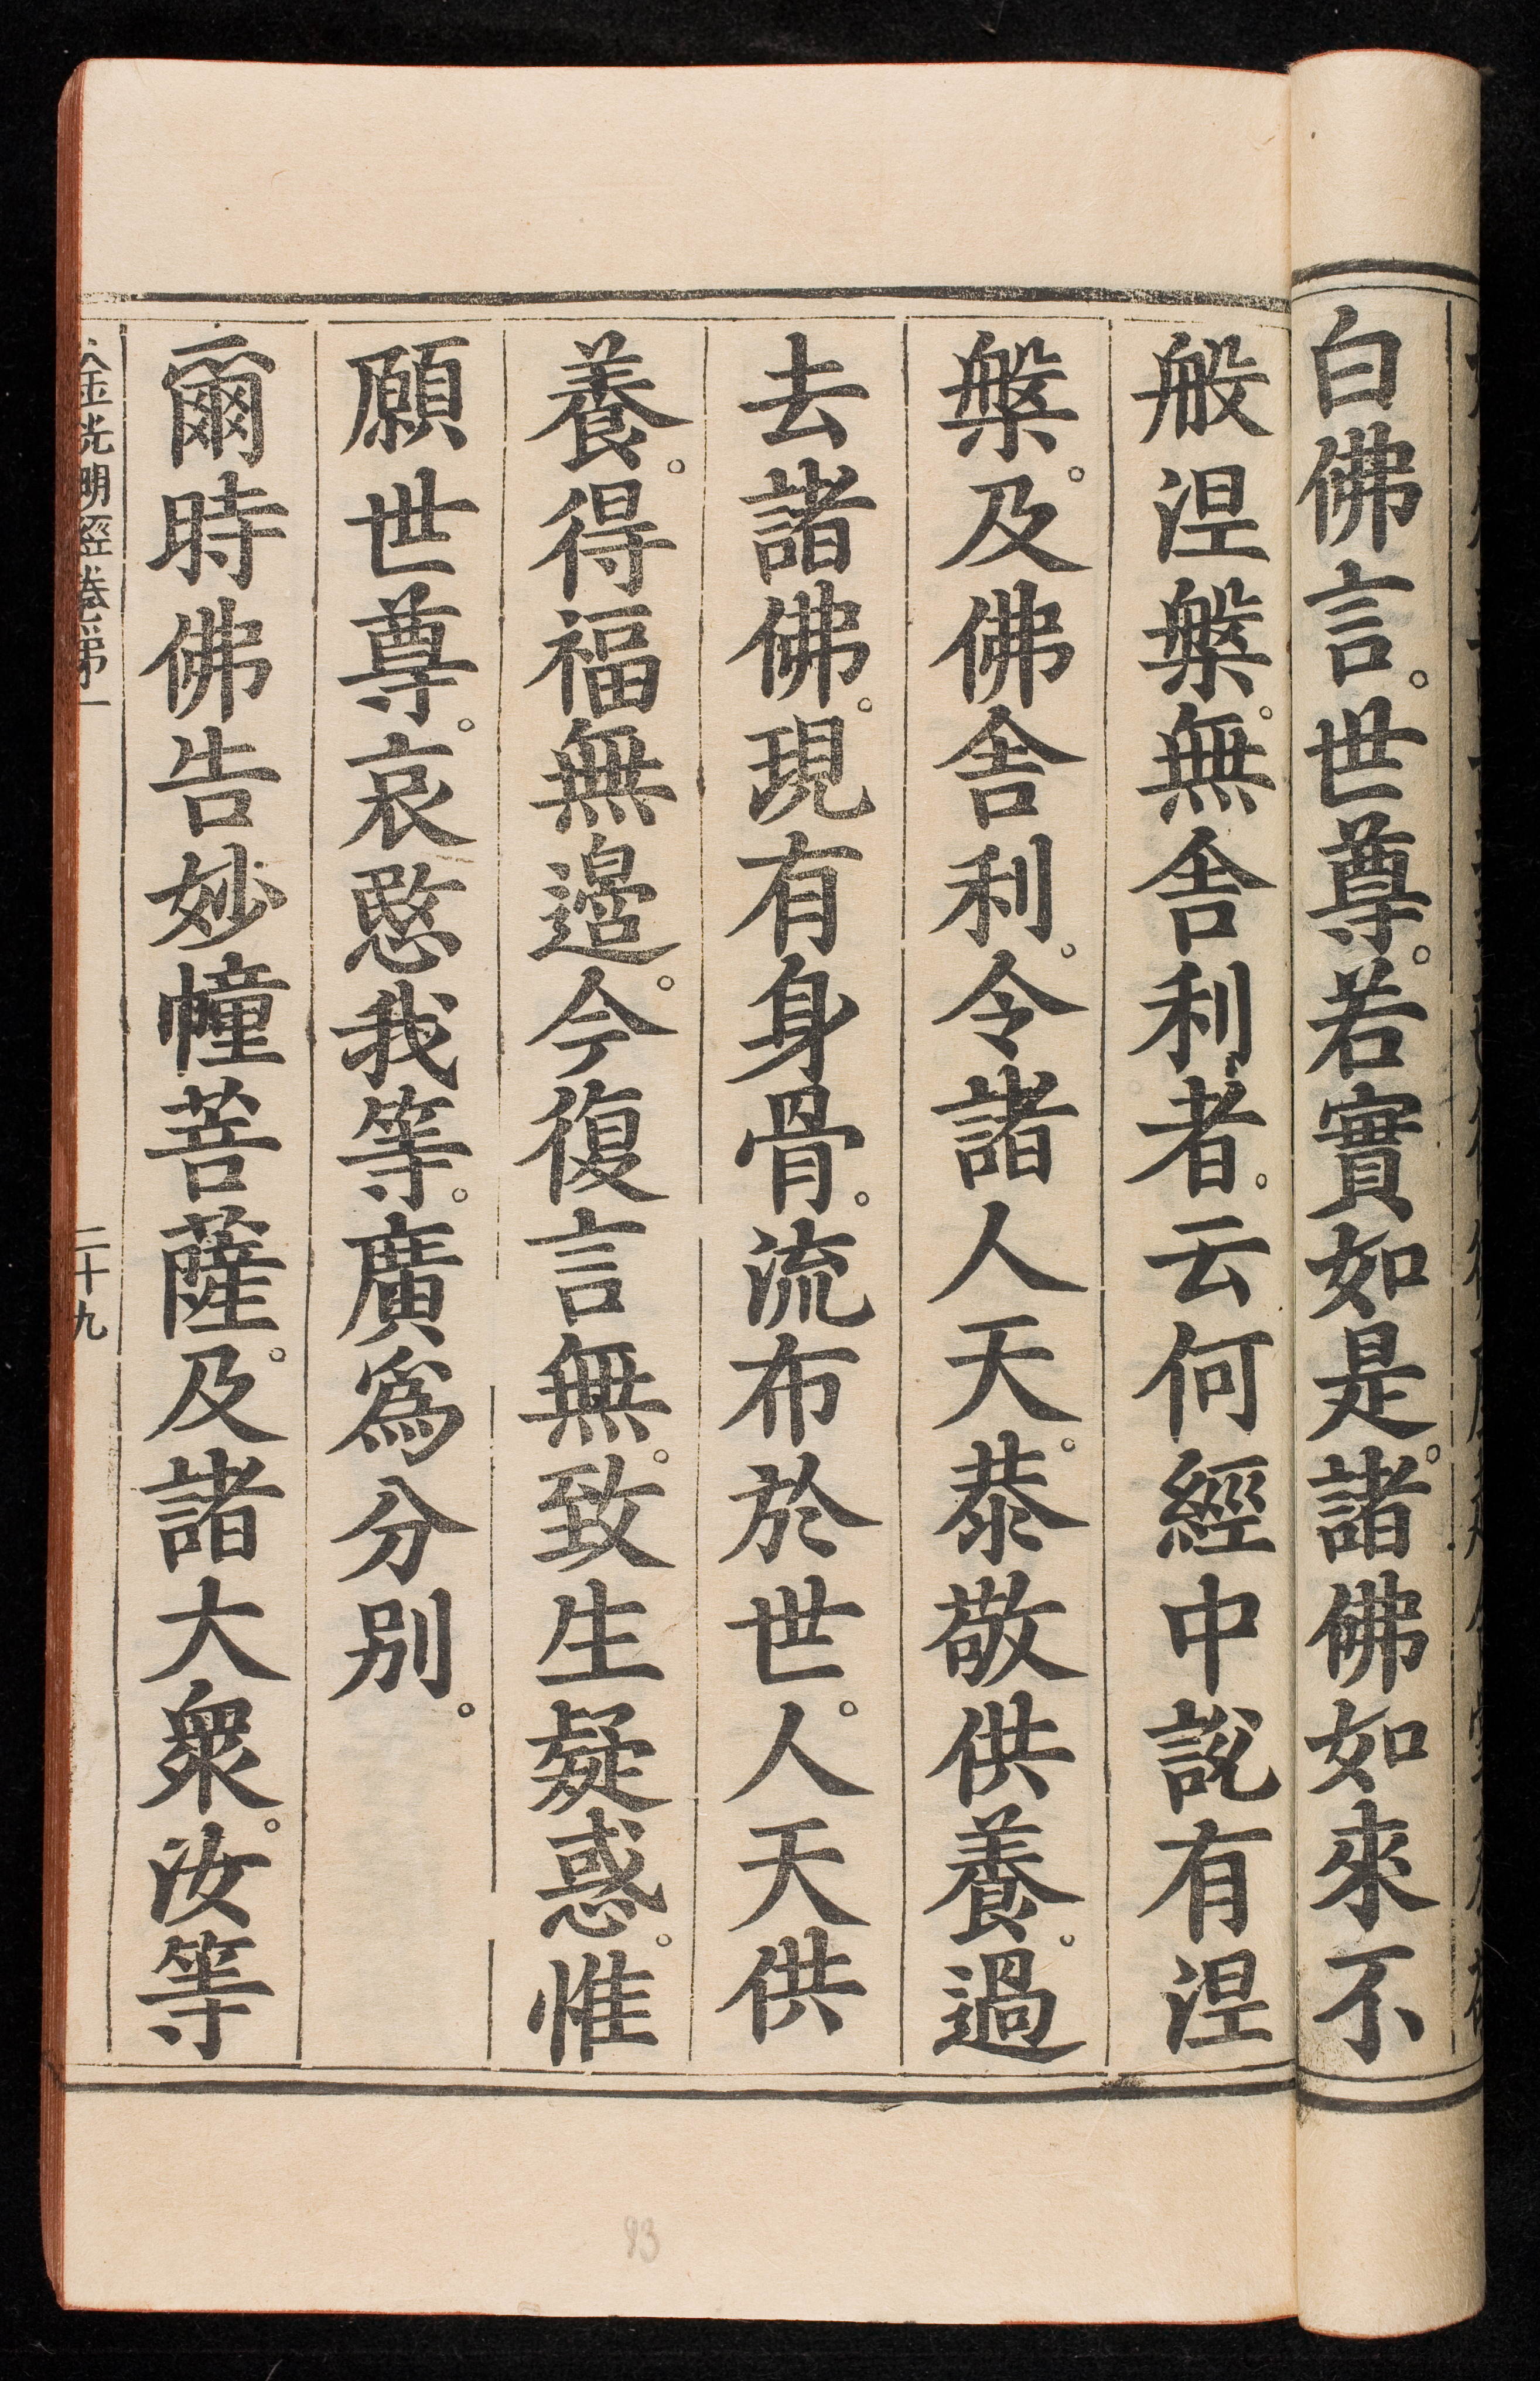 白佛言。世尊。若實如是。諸佛如來不
般涅槃。無舍利者。云何經中說有涅
槃。及佛舍利。令諸人天。恭敬供養。過
去諸佛。現有身骨。流布於世。人天供
養。得福無邊。今復言無。致生疑惑。惟
願世尊。哀愍我等。廣爲分別。
爾時佛告妙幢菩薩。及諸大衆。汝等
金光明經卷第一 二十九
93